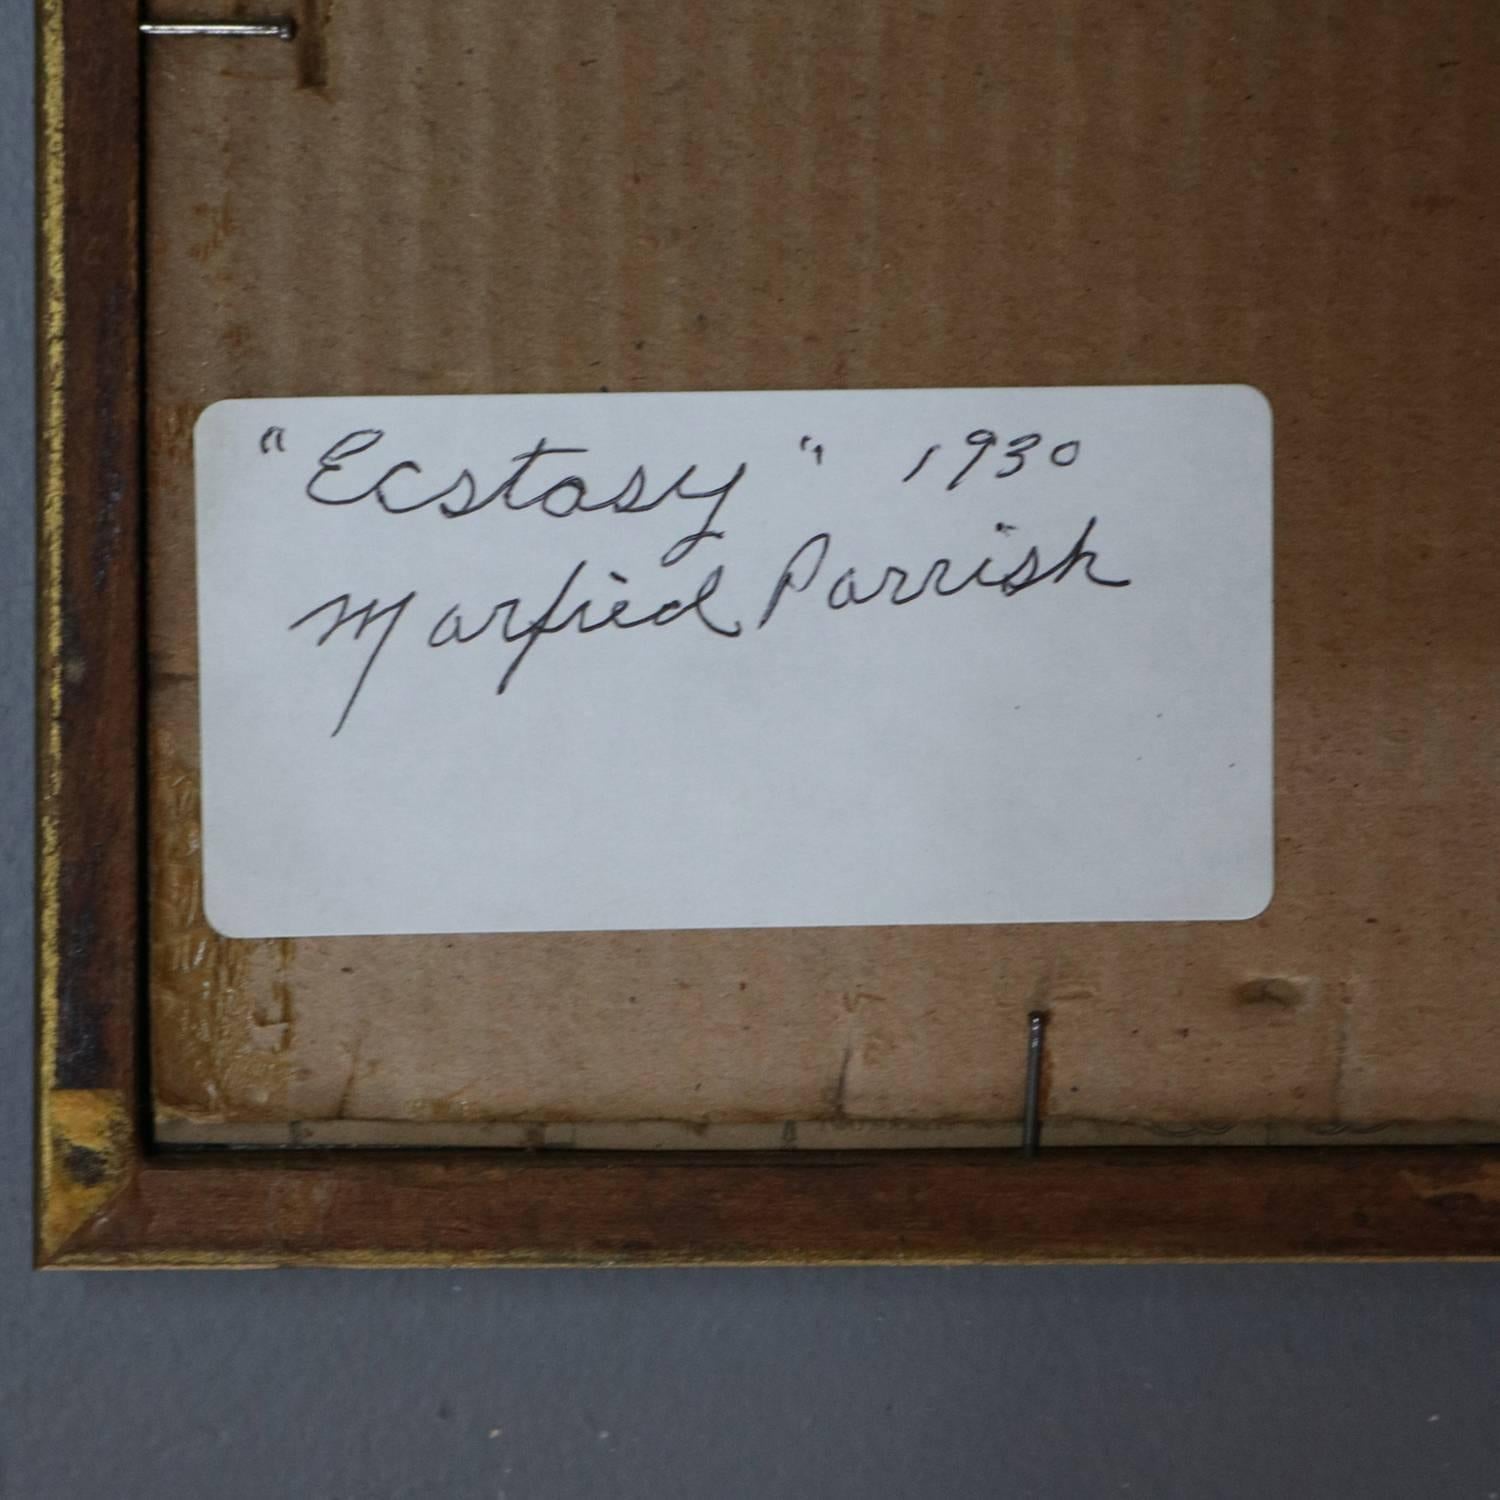 "Ecstasy" 1930
Marfied Parrish